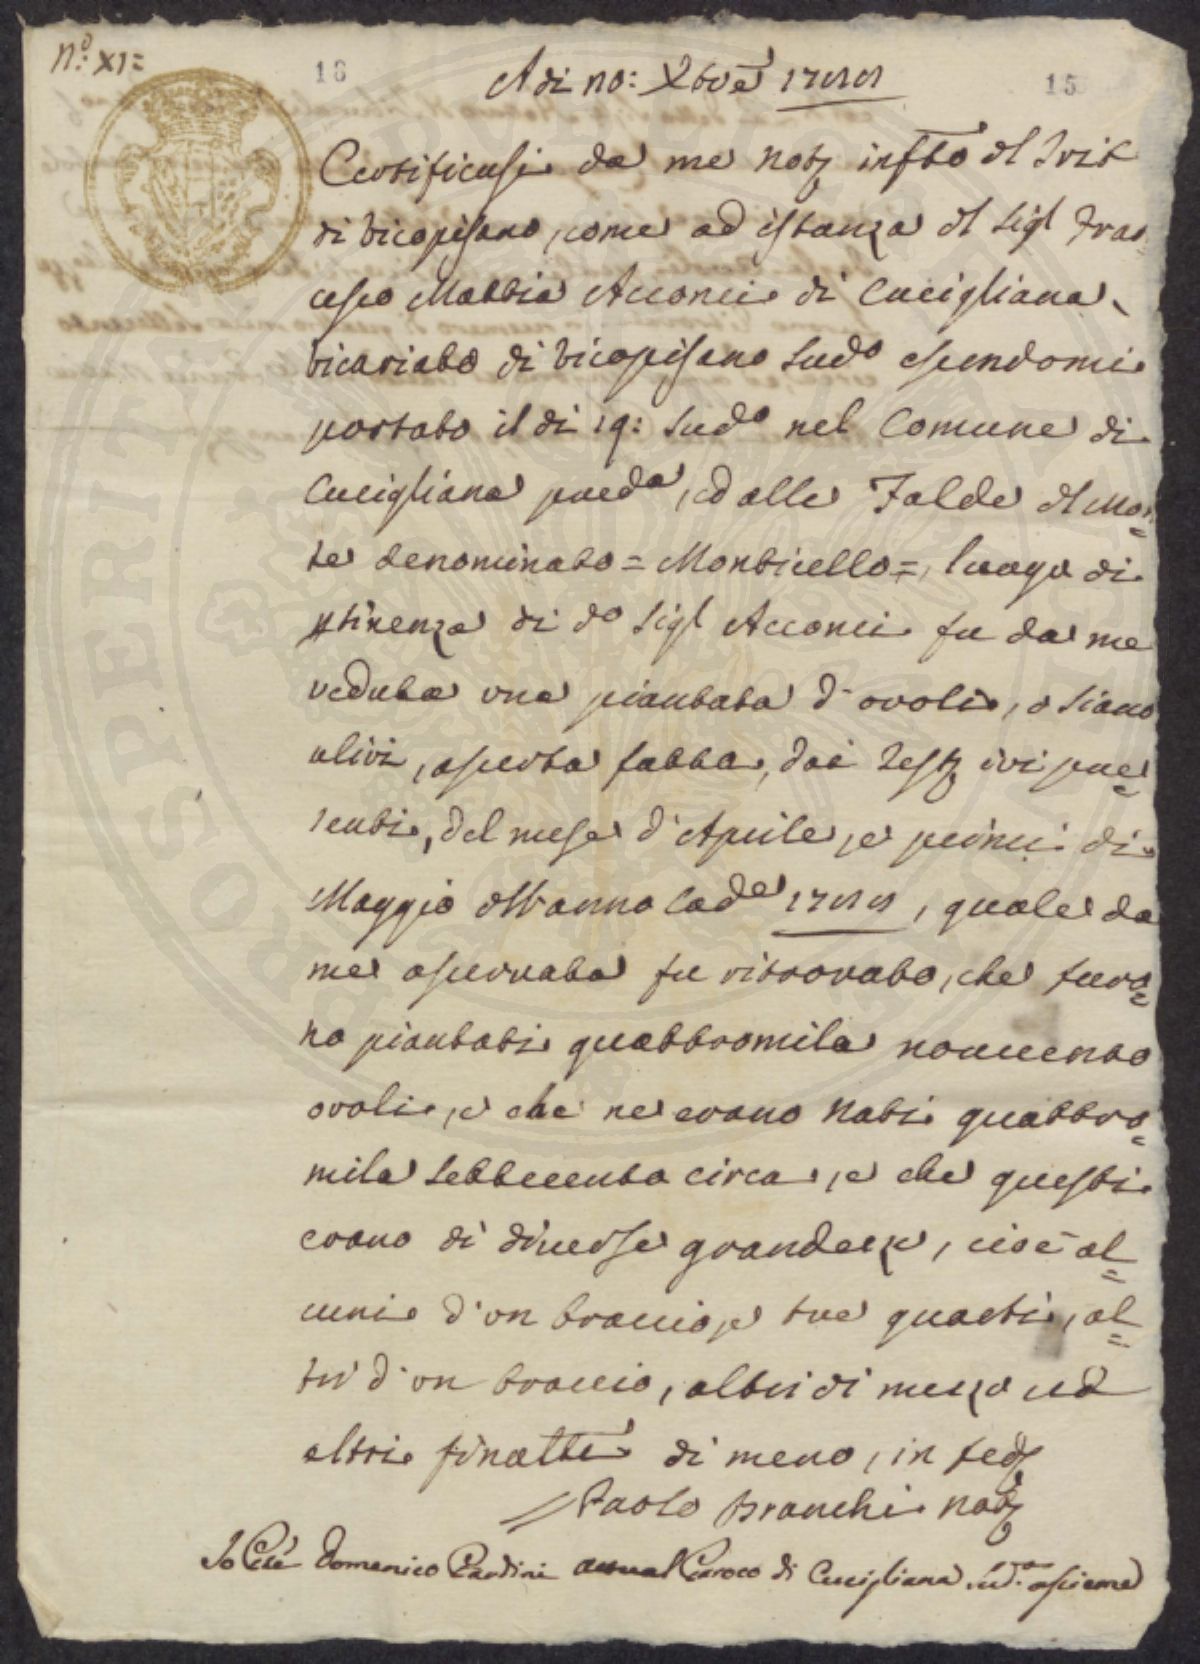 N.° XI=
16
15
A di no: Xbre 
Certificasi da me Notz infrto dl Trib
di Vicopisano, come ad istanza dl Sigl Fran
cesco Mattia Acconci di Cucigliana
Vicariato di Vicopisano sudo essendomi
portato il di 19: sudo nel Comune di
Cucigliana preda, ed alle Falde dl Mon=
te denominato = Monticello =, luogo di
ptinenza di do Sigl Acconci fu da me
veduta una piantata d'ovoli, o siano
ulivi, asserta fatta, dai Testz ivi pre=
senti, del mese d'Aprile, e princi di
Maggio dll'anno cade, quale da
me osservata fu ritrovato, che furo=
no piantati quattromila novecento
ovoli, e che ne erano nati quattro=
mila settecento circa, e che questi
erano di diverse grandezze, cioè al=
cuni d'un braccio, e tre quarti, al=
tri d'un braccio, altri di mezzo ed
altri finalte di meno, in fedz
Paolo Branchi Notz
Io Domenico Pardini attual Paroco di Cucigliana